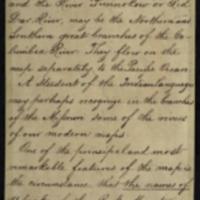 and the River Tunnolow or Red
Deer River, may be the Northern and
Southern great branches of the Co-
lumbia River. They flow on the
map separately to the Pacific Ocean.
A Student of the Indian Languages
may perhaps recognize in the branches
of the Missouri some of the rivers
of our modern maps.
One of the principal and most
remarkable features of the map is
the circumstance that the names of